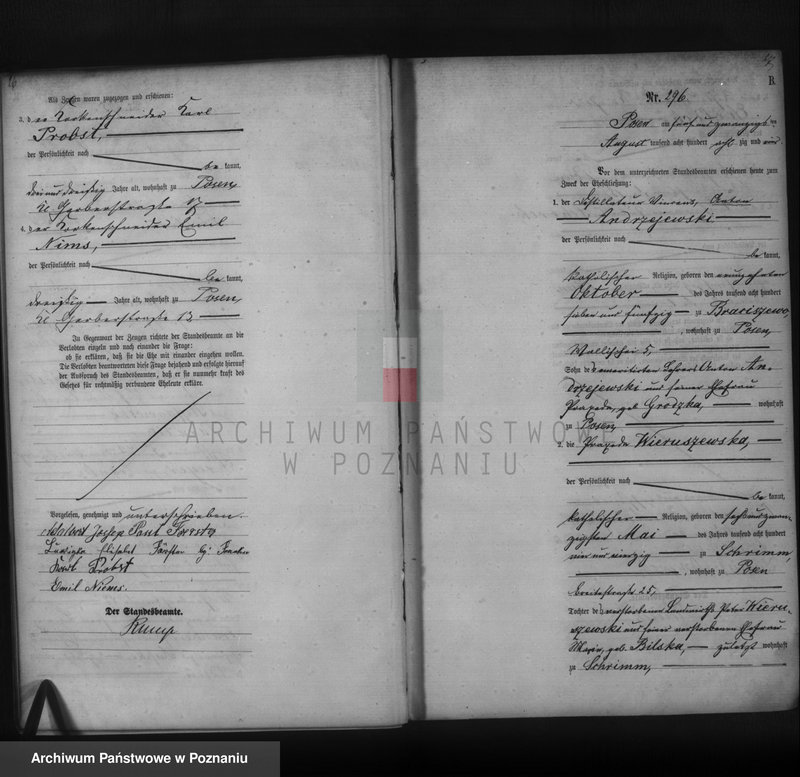 Als Zeugen waren zugezogen und erschienen:
3. der Korkenschneider Karl
Probst,
der Persönlichkeit nach
be kannt,
drei und dreißig Jahre alt, wohnhaft zu Posen,
Kl Gerberstraße
4. der Korkenschneider Emil
Nims,
der Persönlichkeit nach
be kannt,
dreißig Jahre alt, wohnhaft zu Posen,
Kl Gerberstraße
In Gegenwart der Zeugen richtete der Standesbeamte an die
Verlobten einzeln und nach einander die Frage:
ob sie erklären, daß sie die Ehe mit einander eingehen wollen.
Die Verlobten beantworteten diese Frage bejahend und erfolgte hierauf
der Ausspruch des Standesbeamten, daß er sie nunmehr kraft des
Gesetzes für rechtmäßig verbundene Eheleute erkläre.
Vorgelesen, genehmigt und unterschrieben.
Joseph Paul
Elisabet
Karl Probst
Emil Niems.
Der Standesbeamte.
Rump
B.
Nr. 296.
Posen am fünf und zwanzigsten
August tausend acht hundert acht zig und ein
Vor dem unterzeichneten Standesbeamten erschienen heute zum
Zweck der Eheschließung:
1. der Destillateur Vincenz, Anton
Andrzejewski
der Persönlichkeit nach
be kannt,
katholischer Religion, geboren den neunzehnten
Oktober des Jahres tausend acht hundert
sieben und fünfzig zu Braciszewo,
, wohnhaft zu Posen,
Wallischei 5,
Sohn des emeritirten Lehrers Anton An-
drzejewski und seiner Ehefrau
Praxeda, geb. Grodzka, wohnhaft
zu Posen,
2. die Praxeda Wieruszewska,
der Persönlichkeit nach
be kannt,
katholischer Religion, geboren den sechs und zwan-
zigsten Mai des Jahres tausend acht hundert
vier und vierzig zu Schrimm,
, wohnhaft zu Posen
Breitestraße 25,
Tochter des verstorbenen Landwirths Peter Wieru-
szewski und seiner verstorbenen Ehefrau
Marie, geb. Bilska, zuletzt wohnhaft
zu Schrimm,
ARCHIWUM PAŃSTWOWE
W POZNANIU
Archiwum Państwowe w Poznaniu